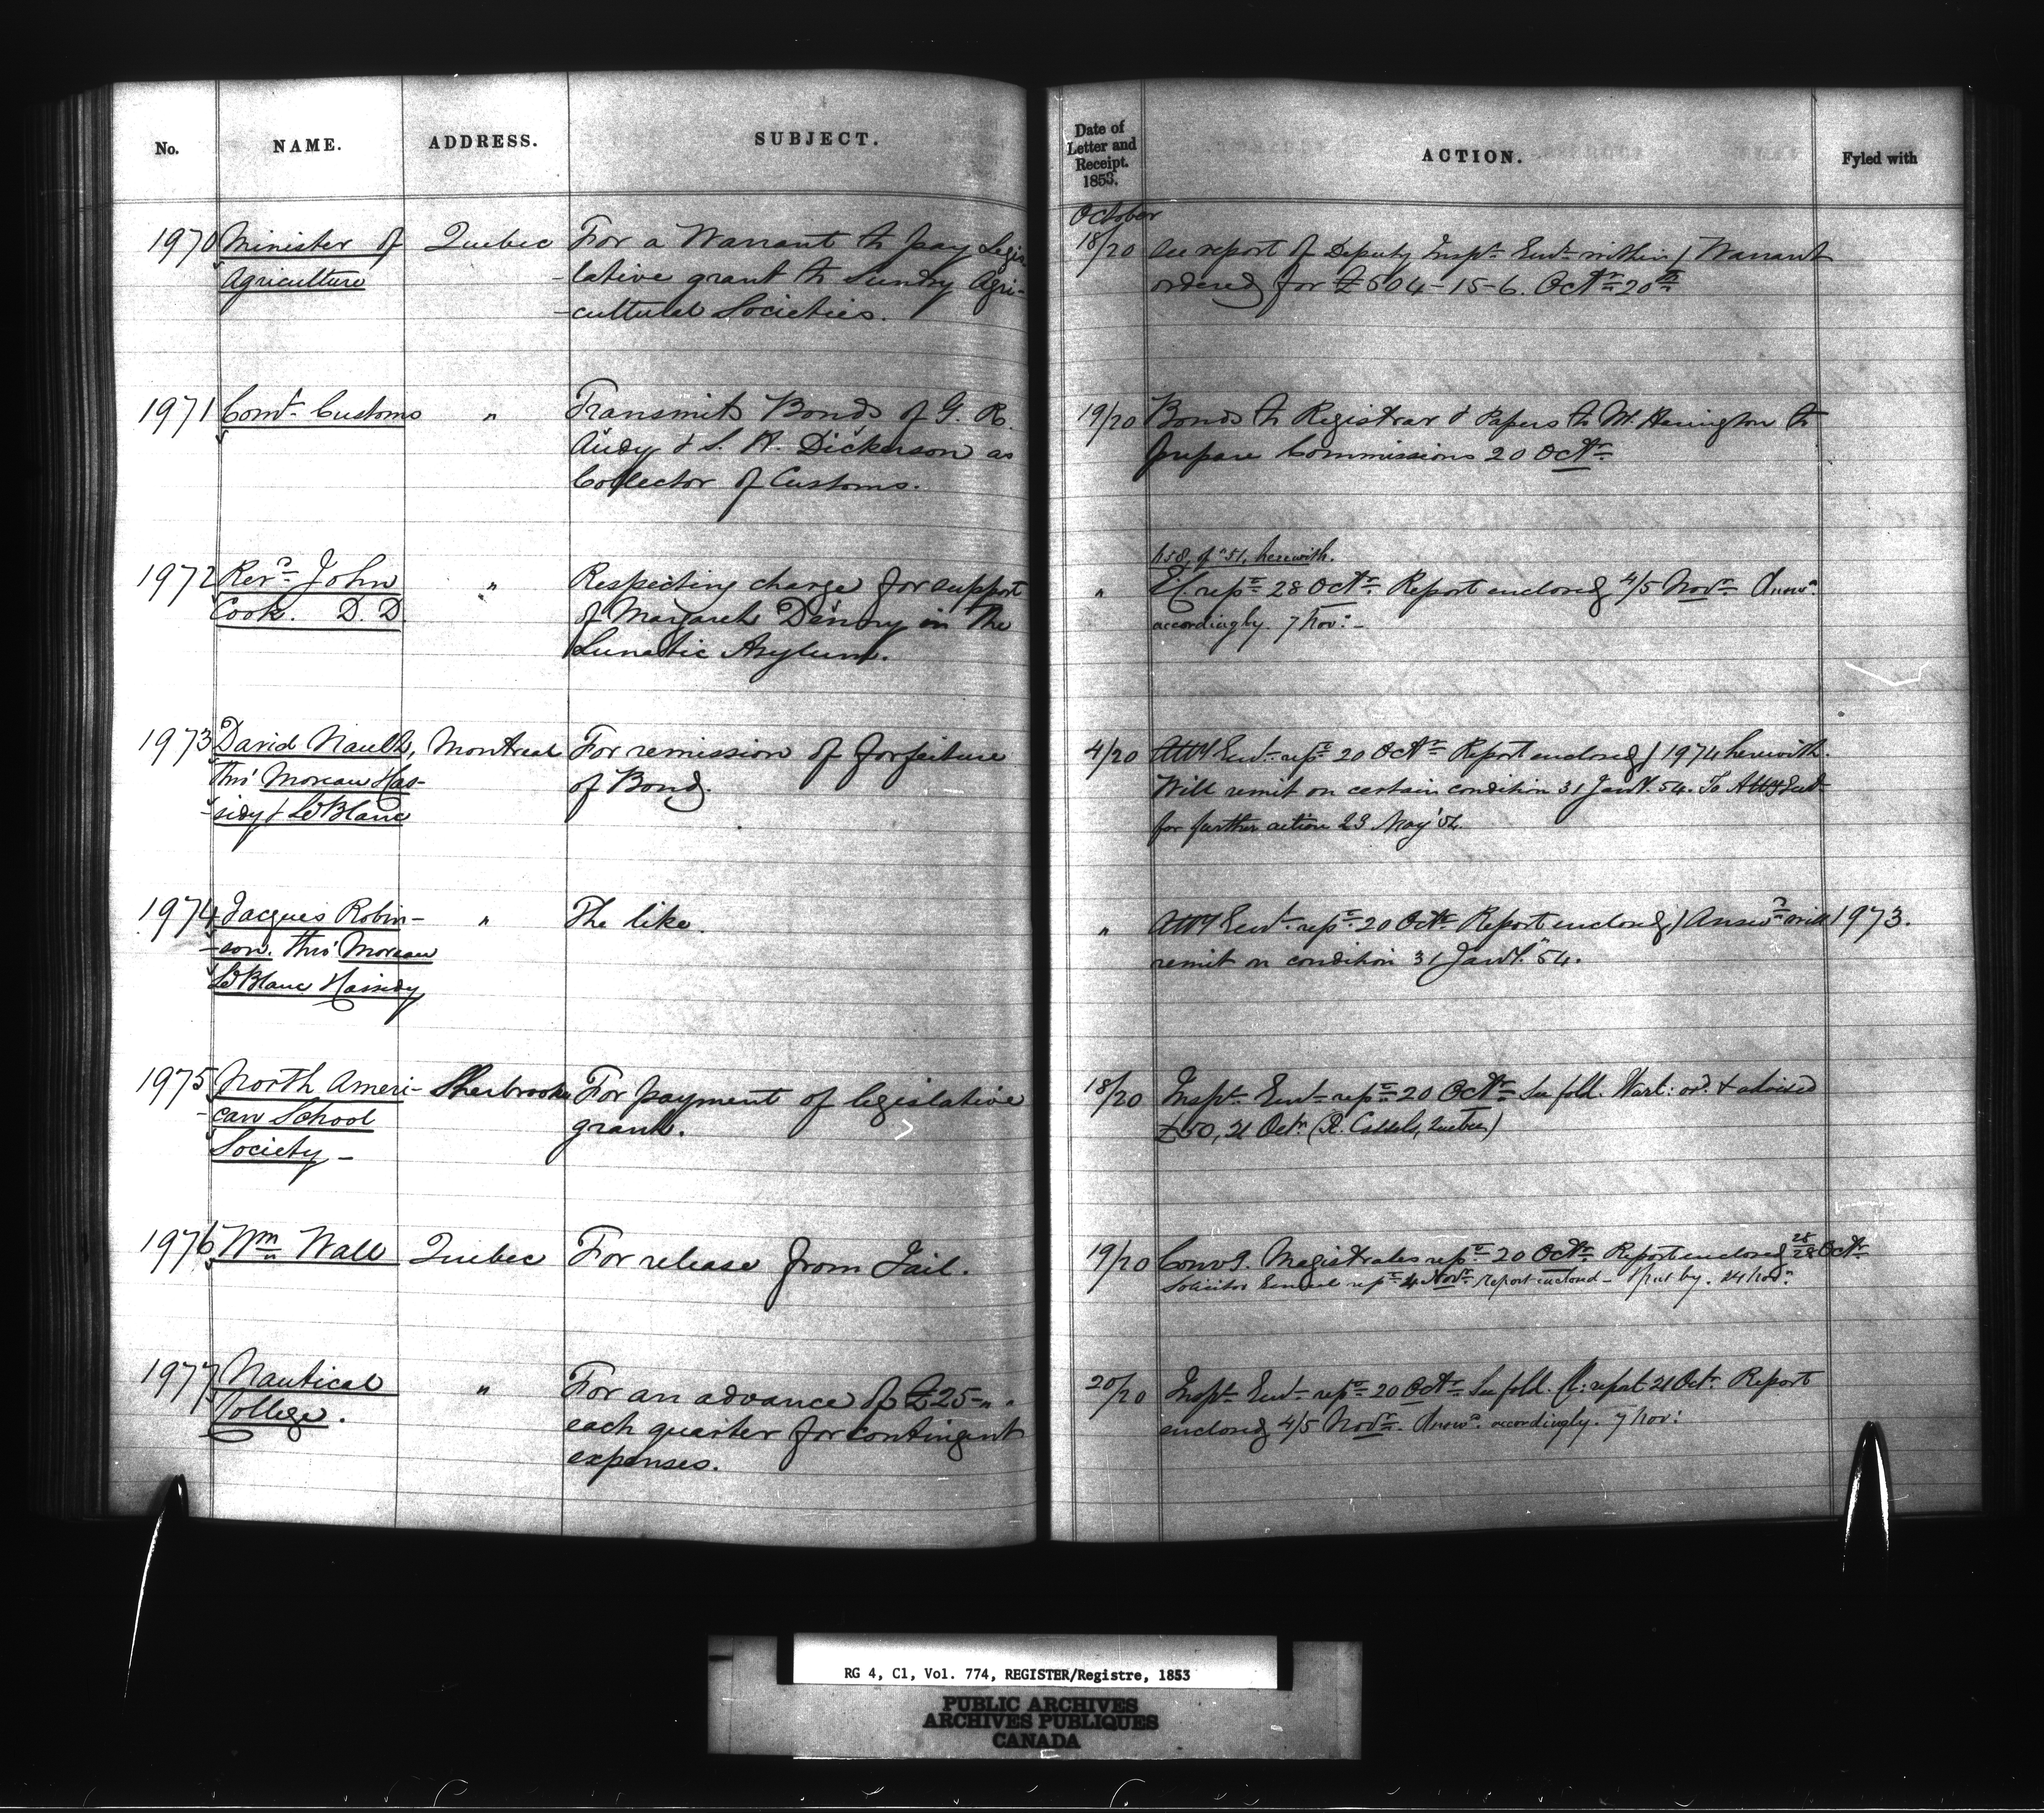 No. NAME. ADDRESS. SUBJECT.
1970 Minister of Quebec For a Warrant to pay Legis
Agriculture -lative grant to Sundry Agri-
-cultural Societies.
1971 Comr. Customs " Transmits Bonds of G. R.
Audy & S. H. Dickerson as
Collector of Customs.
1972 Revd. John " Respecting charge for support
Cook. D.D of Margaret Denny in the
Lunatic Asylum.
1973 David Nault, Montreal For remission of forfeiture
thro' Moreau Has- of Bond.
-sidy & LeBlanc
1974 Jacques Robin- " The like.
-son. thro' Moreau
LeBlanc Hassidy
1975 North Ameri- Sherbrooke For payment of legislative
-can School grant.
Society -
1976 Wm Wall Quebec For release from Jail.
1977 Nautical " For an advance of £25-"-"
College. each quarter for contingent
expenses.
Date of
Letter and
Receipt.
1853. ACTION. Fyled with
October
18/20 See report of Deputy Inspr. Genl. within / Warrant
ordered for £504-15-6. Octr. 20th
19/20 Bonds to Registrar & Papers to Mr. Harington to
prepare Commissions 20 Octr.
658 of '51, herewith.
" repd 28 Octr. Report enclosed 4/5 Novr. Answd.
accordingly. 7 Nov: -
4/20 Atty Genl. repd 20 Octr. Report enclosed / 1974 herewith.
Will remit on certain condition 31 Jany. 54. To Atty Genl
for further action 23 May '54.
" Atty Genl. repd 20 Octr. Report enclosed / Answd will 1973.
remit on condition 31 Jany. '54.
18/20 Inspr. Genl. repd 20 Octr. See fold. Wart: ord. & advised
£50, 21 Octr. (R. Cassels, Quebec)
19/20 Convg. Magistrates repd 20 Octr. Report enclosed 28/28 Octr.
Solicitor General repd 4 Novr. Report enclosed - & put by. 24 Novr.
20/20 Inspr. Genl. repd 20 Octr. See fold. report 21 Octr. Report
enclosed 4/5 Novr. Answd. accordingly. 7 Nov:
RG 4, C1, Vol. 774, REGISTER/Registre, 1853
PUBLIC ARCHIVES
ARCHIVES PUBLIQUES
CANADA